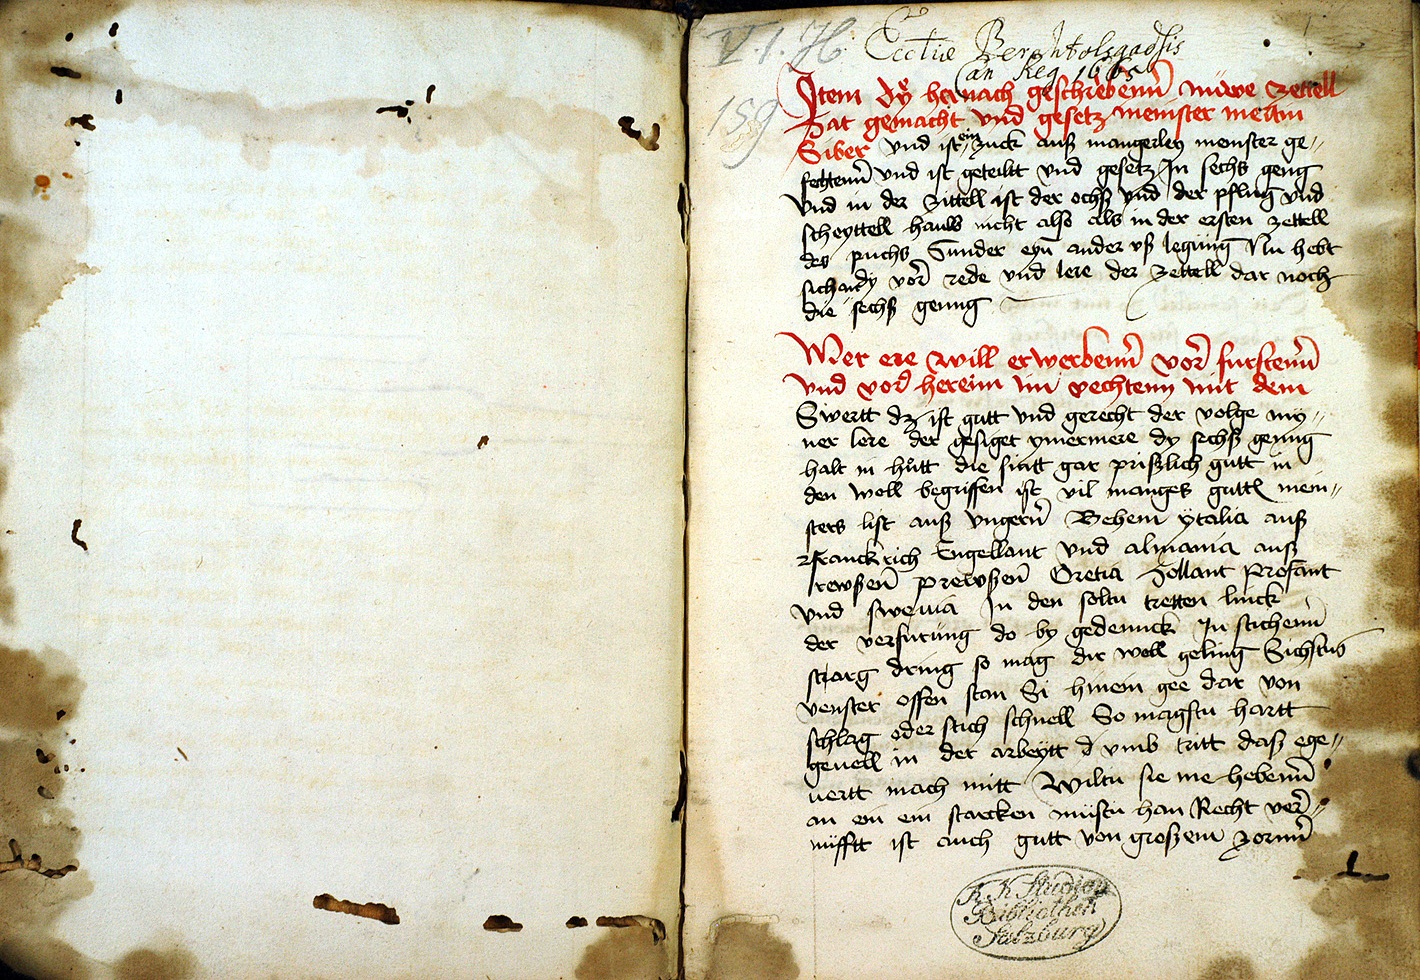 V. 1. H
159
Eccliæ Berchtolsgadsis
an Reg 1665
Item dÿ hernach geschriebenn nüwe zettell
hat gemacht vnd gesetz meinster mertin
Siber vnd ist ein zuck auß mangerley meinster ge-
fechtenn vnd ist geteiltt vnd gesetz In sechs geng
Vnd in der zittell ist der ochß vnd der pflug vnd
scheyttell hauw nicht also als in der ersten zettell
des puchs Sunder eyn ander vß legung Nu hebt
sich an dy vor rede vnd lere der zettell dar noch
die sechß genng
Wer ere will erwerbenn vor furstenn
vnd vor herenn im vechtenn mit dem
Swertt dz ist gutt vnd gerecht der volge my-
ner lere der gesiget ymermere dy sechß genng
halt in hutt die sintt gar prißlich gutt in
den woll begriffen ist vil manges gutt mein-
sters list auß vngern Behem ytalia auß
franckrich Engellant vnd almania auß
rewßen prewßen Gretia Hollant Profant
vnd swevia In den soltu tretten linck
der verfurung do by gedennck In stichenn
starg dring so mag dir woll geling Sichstus
venster offen stan Si hinein gee dar von
schlag oder stich schnell So magstu hartt
geuell in der arbeytt d vmb tritt daß ege-
uertt mach mitt Wiltu sie me hebenn
an ein ein starcken mustu han Recht ver-
nüfftt ist auch gutt von großem zornn
K. K. Studien
Bibliothek
Salzburg